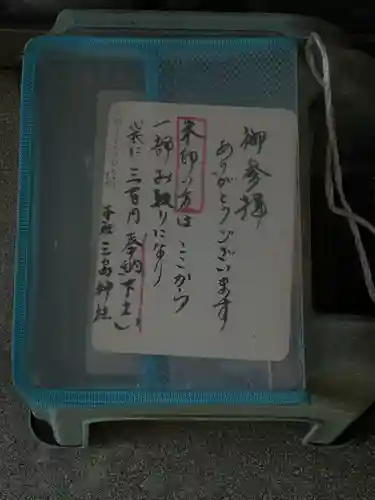 御参拝
ありがとうございます
朱印の方はここから
一部お取りになり
箱に三百円奉納下さい
三島神社